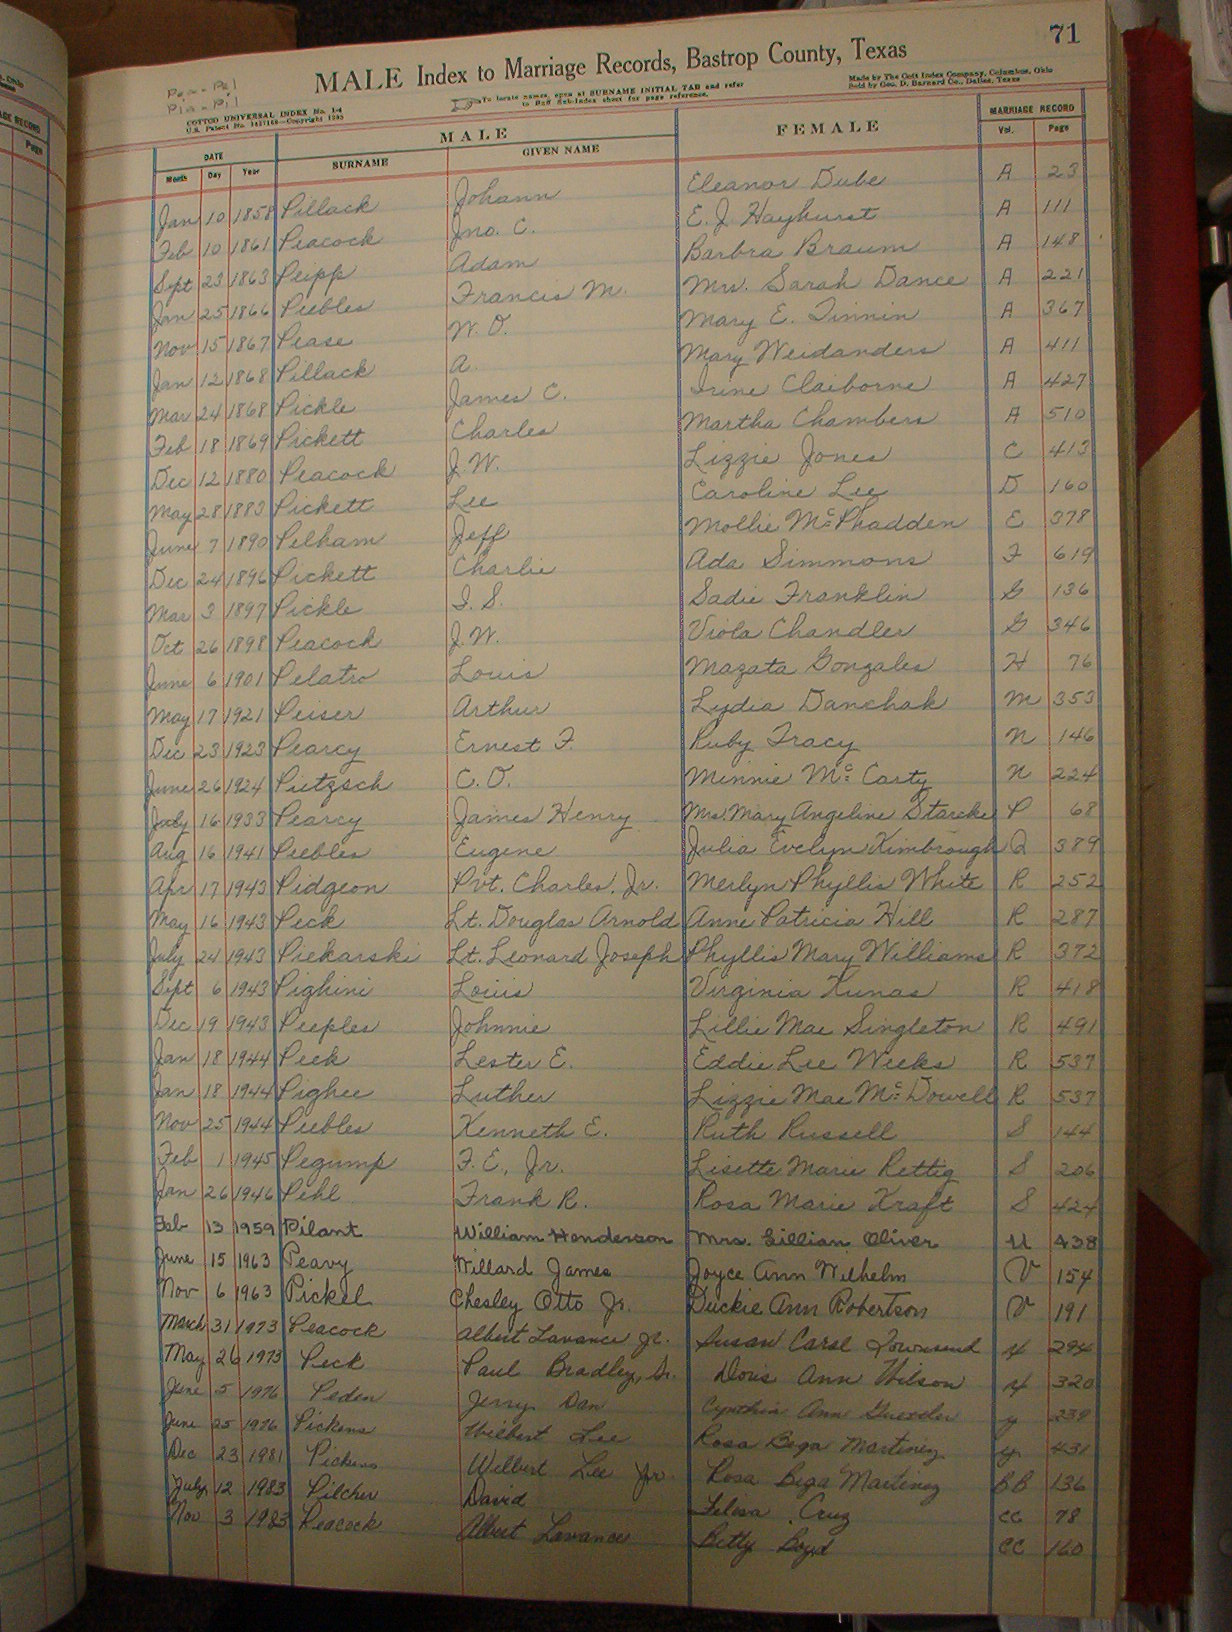 71
Pea - Pel
Pia - Pil
MALE Index to Marriage Records, Bastrop County, Texas
COTTCO UNIVERSAL INDEX No. 1-4
To locate names, open at SURNAME INITIAL TAB and refer
to Buff Sub-Index sheet for page reference.
Made by The Cott Index Company, Columbus, Ohio
Sold by Geo. D. Barnard Co., Dallas, Texas
DATE MALE FEMALE MARRIAGE RECORD
Month Day Year SURNAME GIVEN NAME Vol. Page
Jan 10 1858 Pillack Johann Eleanor Dube A 23
Feb 10 1861 Peacock Jno. C. E. J. Hayhurst A 111
Sept 23 1863 Peipp Adam Barbra Braum A 148
Jan 25 1866 Peebles Francis M. Mrs. Sarah Dance A 221
Nov 15 1867 Pease W. O. Mary E. Tinnin A 367
Jan 12 1868 Pillack A. Mary Weidanders A 411
Mar 24 1868 Pickle James C. Irene Claiborne A 427
Feb 18 1869 Pickett Charles Martha Chambers A 510
Dec 12 1880 Peacock J. W. Lizzie Jones C 413
May 28 1883 Pickett Lee Caroline Lee D 160
June 7 1890 Pelham Jeff Mollie McPhadden E 378
Dec 24 1896 Pickett Charlie Ada Simmons F 619
Mar 3 1897 Pickle I. S. Sadie Franklin G 136
Oct 26 1898 Peacock J. W. Viola Chandler G 346
June 6 1901 Pelatro Louis Mazata Gonzales H 76
May 17 1921 Peiser Arthur Lydia Danchak M 353
Dec 23 1923 Pearcy Ernest F. Ruby Tracy N 146
June 26 1924 Pietzsch C. O. Minnie McCarty N 224
July 16 1933 Pearcy James Henry Mrs. Mary Angeline Starcke P 68
Aug 16 1941 Peebles Eugene Julia Evelyn Kimbrough Q 389
Apr 17 1943 Pidgeon Pvt. Charles, Jr. Merlyn Phyllis White R 252
May 16 1943 Peck Lt. Douglas Arnold Anne Patricia Hill R 287
July 24 1943 Piekarski Lt. Leonard Joseph Phyllis Mary Williams R 372
Sept 6 1943 Pighini Louis Virginia Kunas R 418
Dec 19 1943 Peeples Johnnie Lillie Mae Singleton R 491
Jan 18 1944 Peek Lester E. Eddie Lee Weeks R 537
Jan 18 1944 Pighee Luther Lizzie Mae McDowell R 537
Nov 25 1944 Peebles Kenneth E. Ruth Russell S 144
Feb 1 1945 Pegump F. E., Jr. Lisette Marie Rettig S 206
Jan 26 1946 Pehl Frank R. Rosa Marie Kraft S 424
Feb 13 1959 Pilant William Henderson Mrs. Gillian Oliver U 438
June 15 1963 Peavy Willard James Joyce Ann Wilhelm V 154
Nov 6 1963 Pickel Chesley Otto Jr. Duckie Ann Robertson V 191
March 31 1973 Peacock Albert Lavance Jr. Susan Carol Townsend X 294
May 26 1973 Peck Paul Bradley, Sr. Doris Ann Wilson X 320
June 5 1976 Peden Jerry Dan Cynthia Ann y 239
June 25 1976 Pickens Wilbert Lee Rosa Bega Martinez y 431
Dec 23 1981 Pickens Wilbert Lee Jr. Rosa Bega Martinez BB 136
July 12 1983 Pilcher David Felesa Cruz CC 78
Nov 3 1983 Peacock Albert Lavance Betty Boyd CC 160